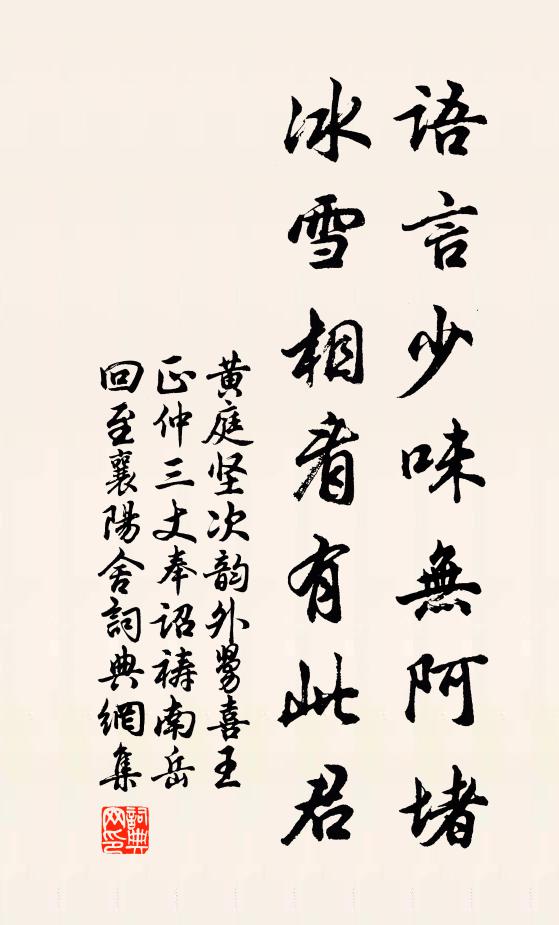 語言少味無阿堵
冰雪相看有此君
黄庭坚次韵外舅喜王
正仲三丈奉诏祷南岳
回至襄陽舍詞典網集
詞典